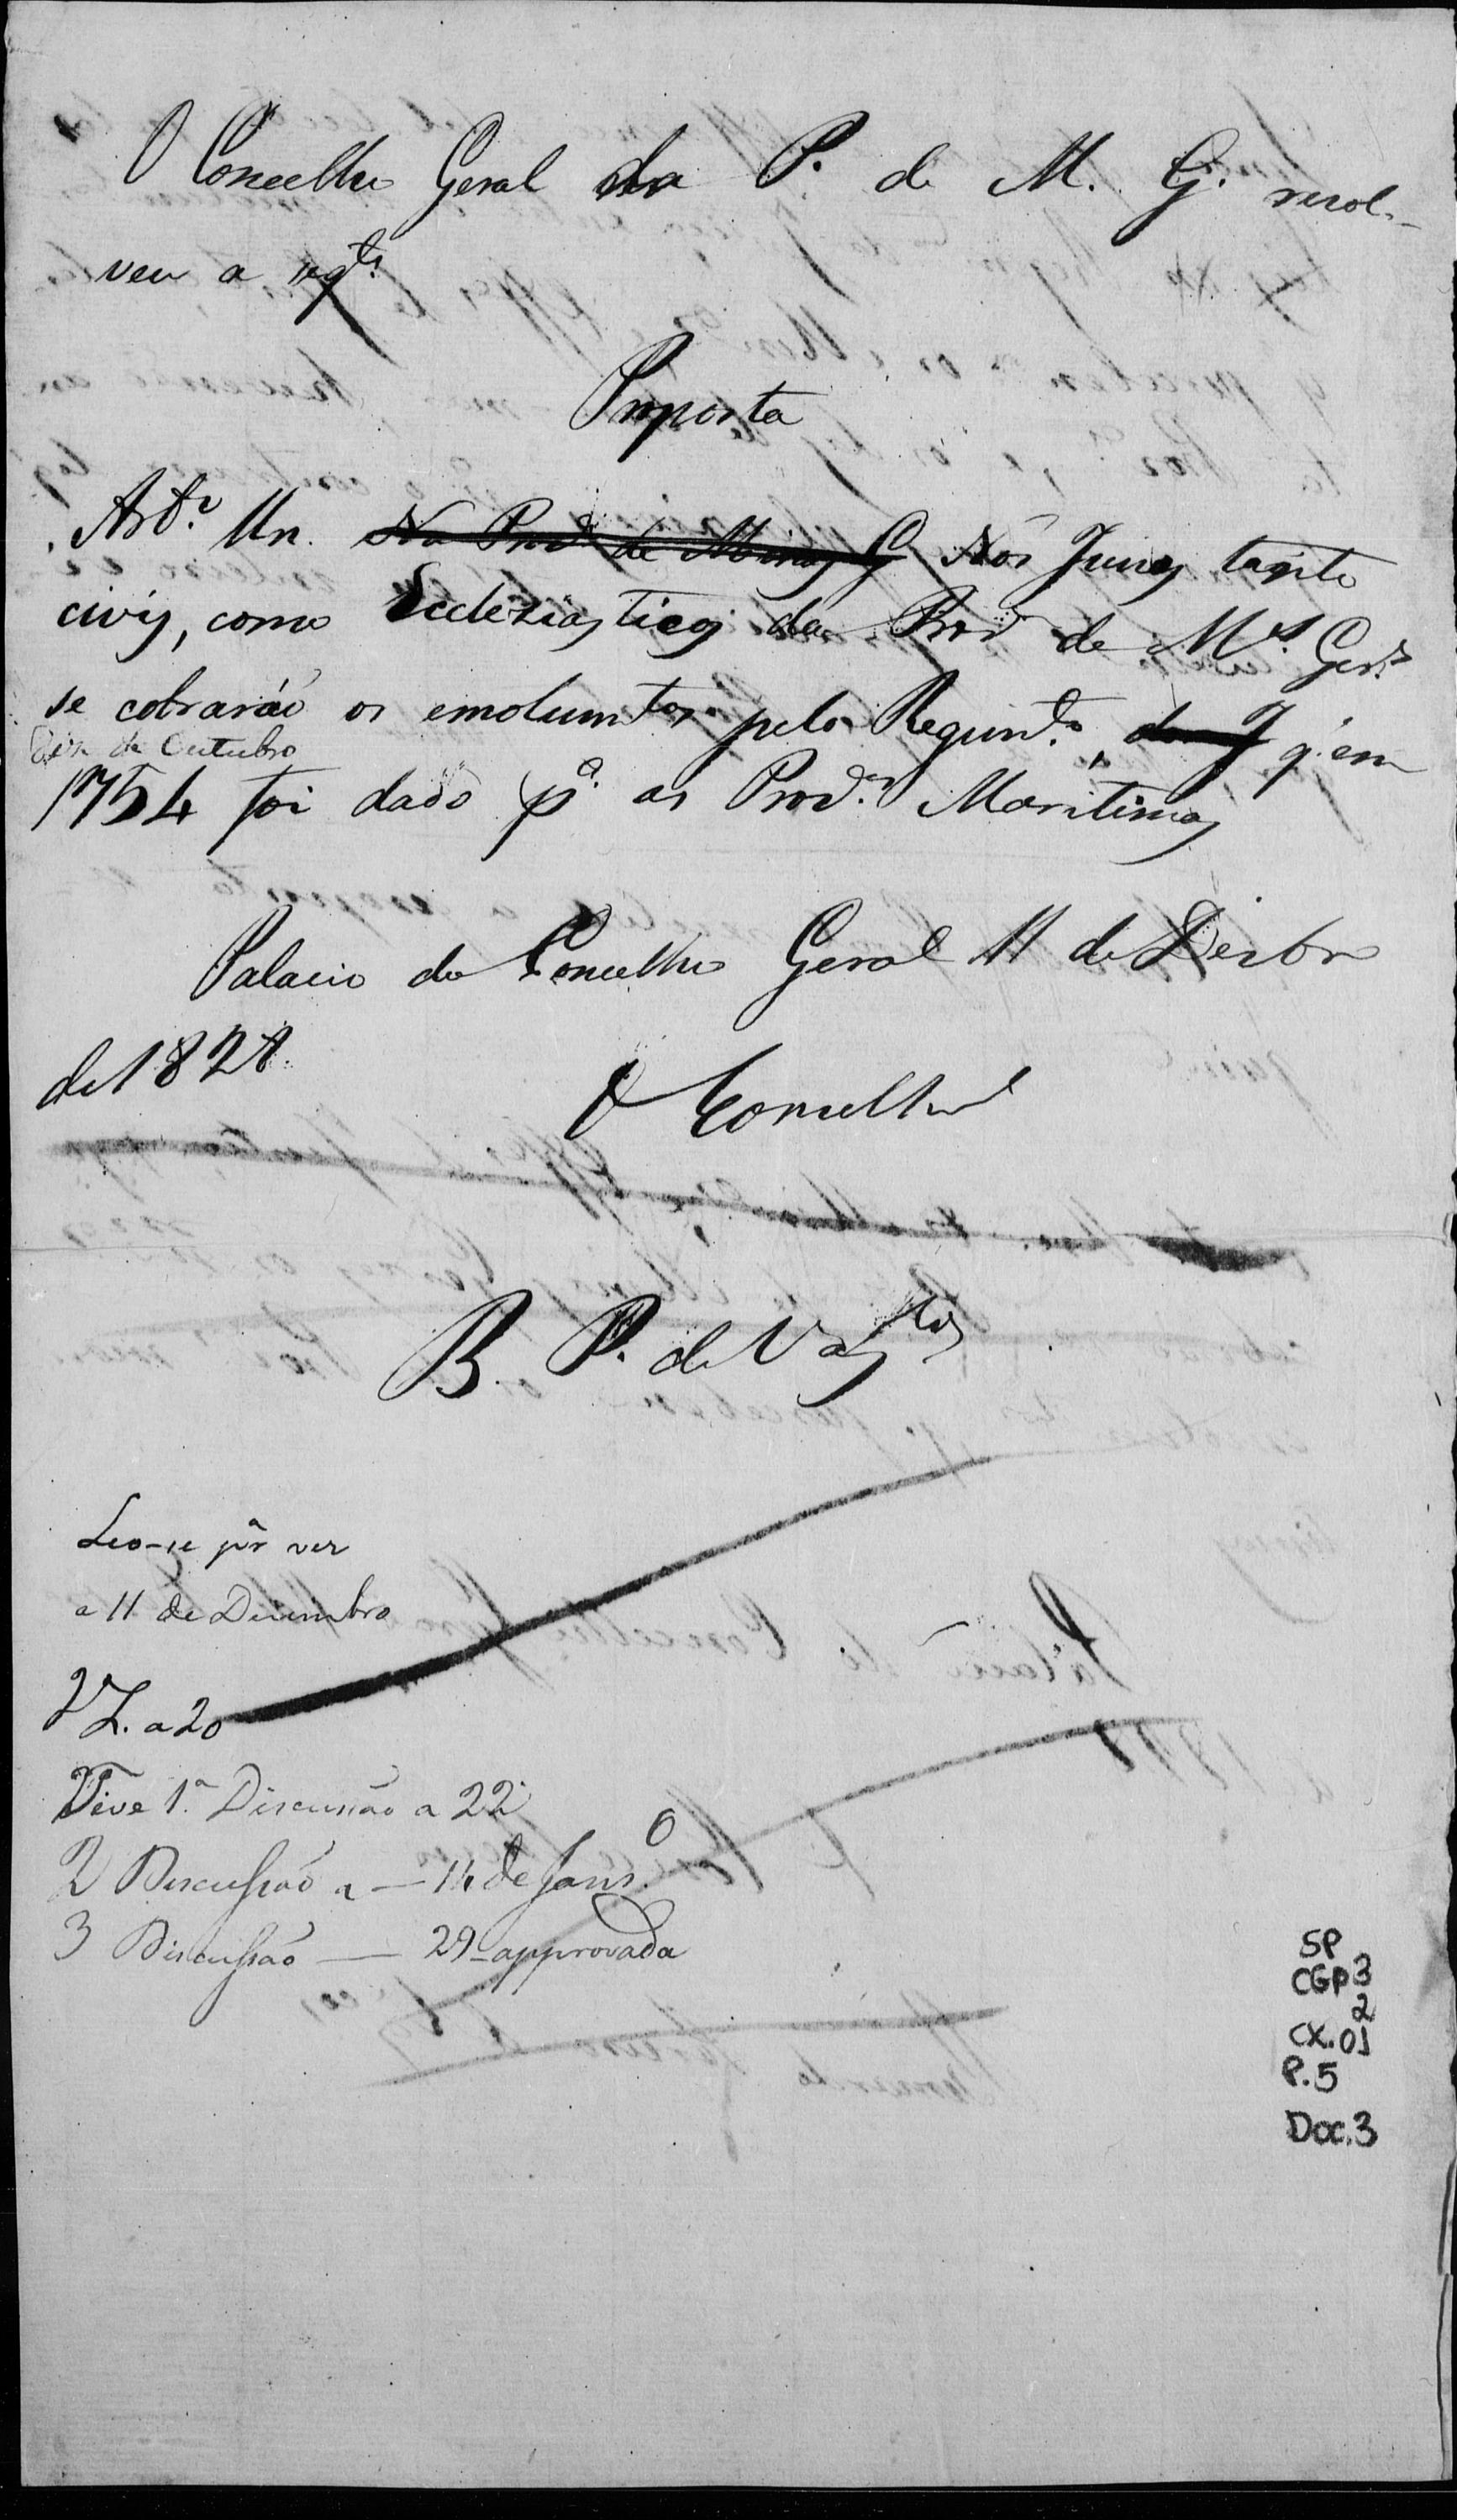 O Concelho Geral da P. de M. G. resol-
veu a segte
Proposta
Arto Un. Na Prova de Minas G Nos Juizos tanto
civis, como Ecclesiasticos da Prova de Mas Geres
se cobraráõ os emolumtos pelo Regimto, q' em
Dez de Outubro
1754 foi dado pa as Provas Maritimas
Palacio do Concelho Geral 11 de Dezbro
de 1828
O Conselhro
B. P. de Vascos
Leo-se pra vez
a 11 de Dezembro
2 L. a 20
Teve 1a Discussão a 22
2 Discussaõ a — 14 de Janro
3 Discussaõ — 29 approvada
SP
CGP3
2
CX.01
P.5
Doc.3